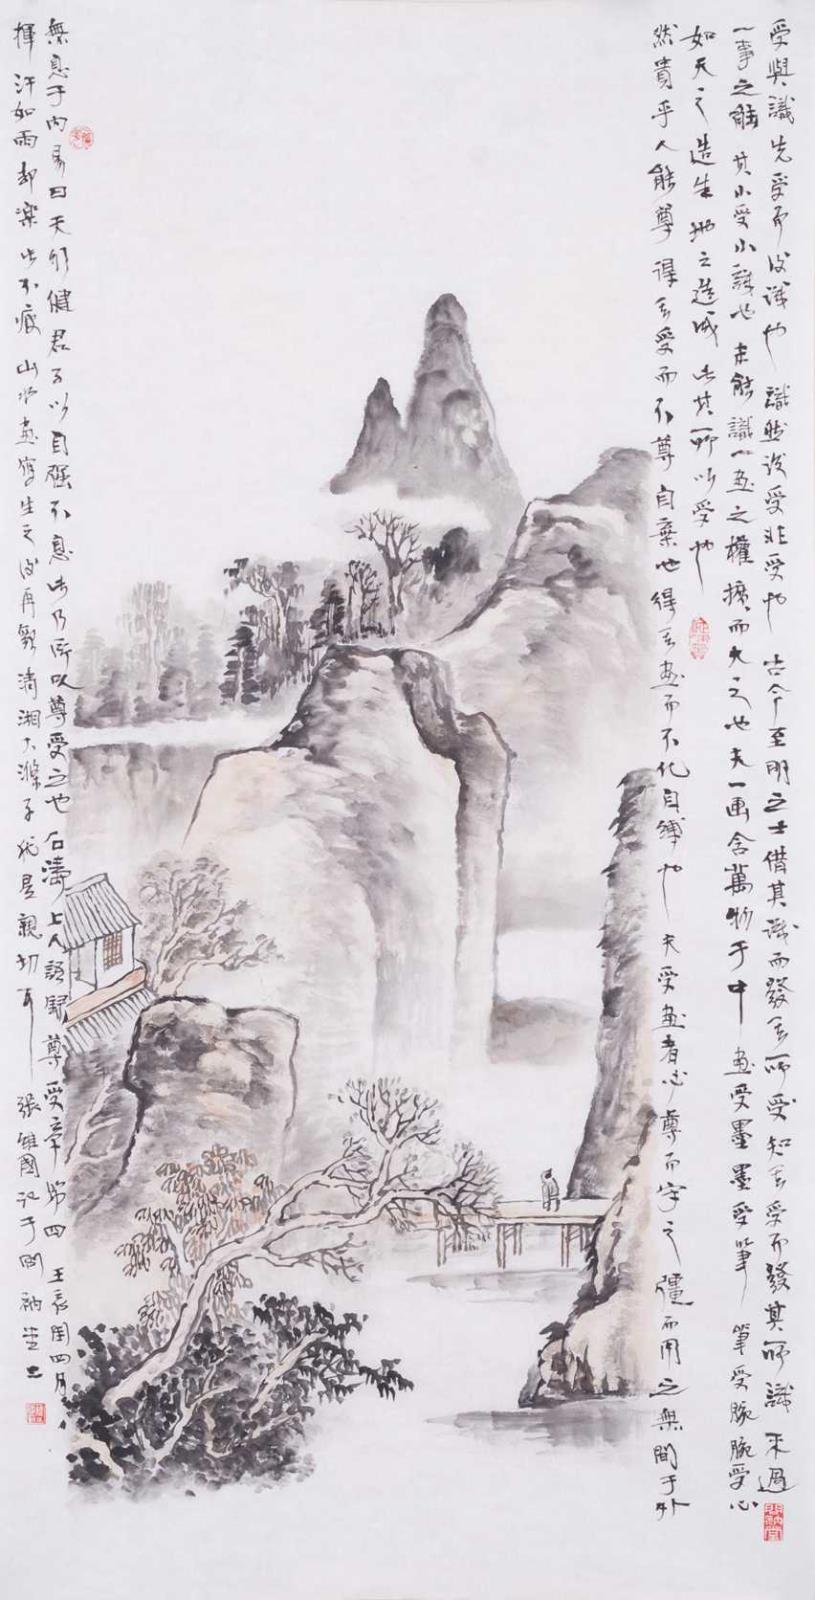 受與識先受而後識也識然後受非受也古今至明之士借其識而發其所受知其受而發其所識不過
一事之能其小受小識也未能識一畫之權擴而大之也夫一画含萬物于中畫受墨墨受筆筆受腕腕受心
如天之造生地之造成此其所以受也
然貴乎人能尊得其受而不尊自棄也得其畫而不化自縛也夫受畫者必尊而守之彊而用之無間于外
無息于内易曰天行健君子以自强不息此乃所以尊受之也石濤上人語録尊受章第四壬辰閏四月
揮汗如雨却樂此不疲山水畫寫生之後再觀清湘大滌子親切耳張維國記于問衲堂上
問衲堂